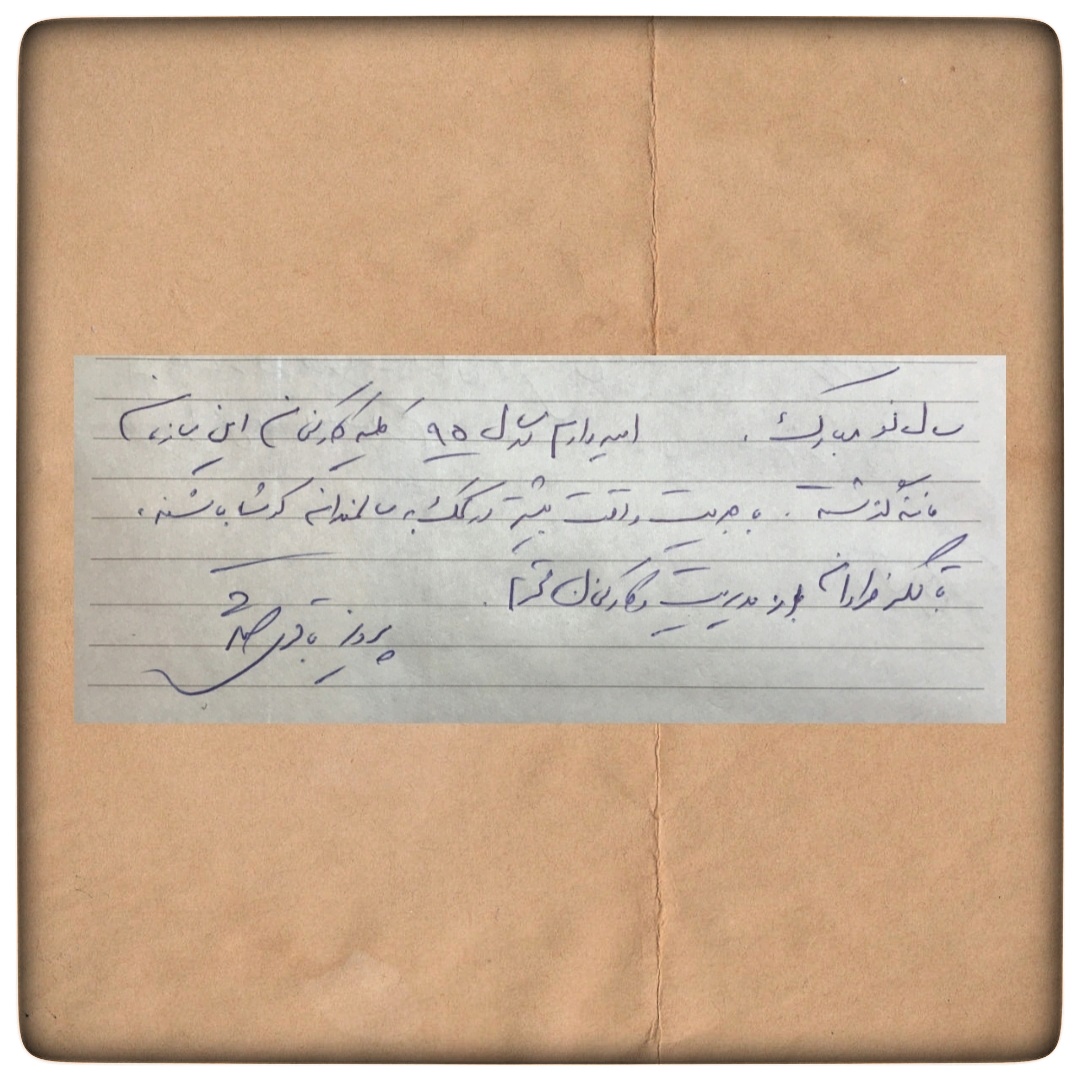 سال نو مبارک. امیدوارم در سال ۹۵ کلیه کارکنان این سازمان
مانند گذشته. با جدیت و دقت بیشتر در کمک به سالمندان کوشا باشند.
با تشکر فراوان از مدیریت و کارکنان محترم.
پرویز باقری